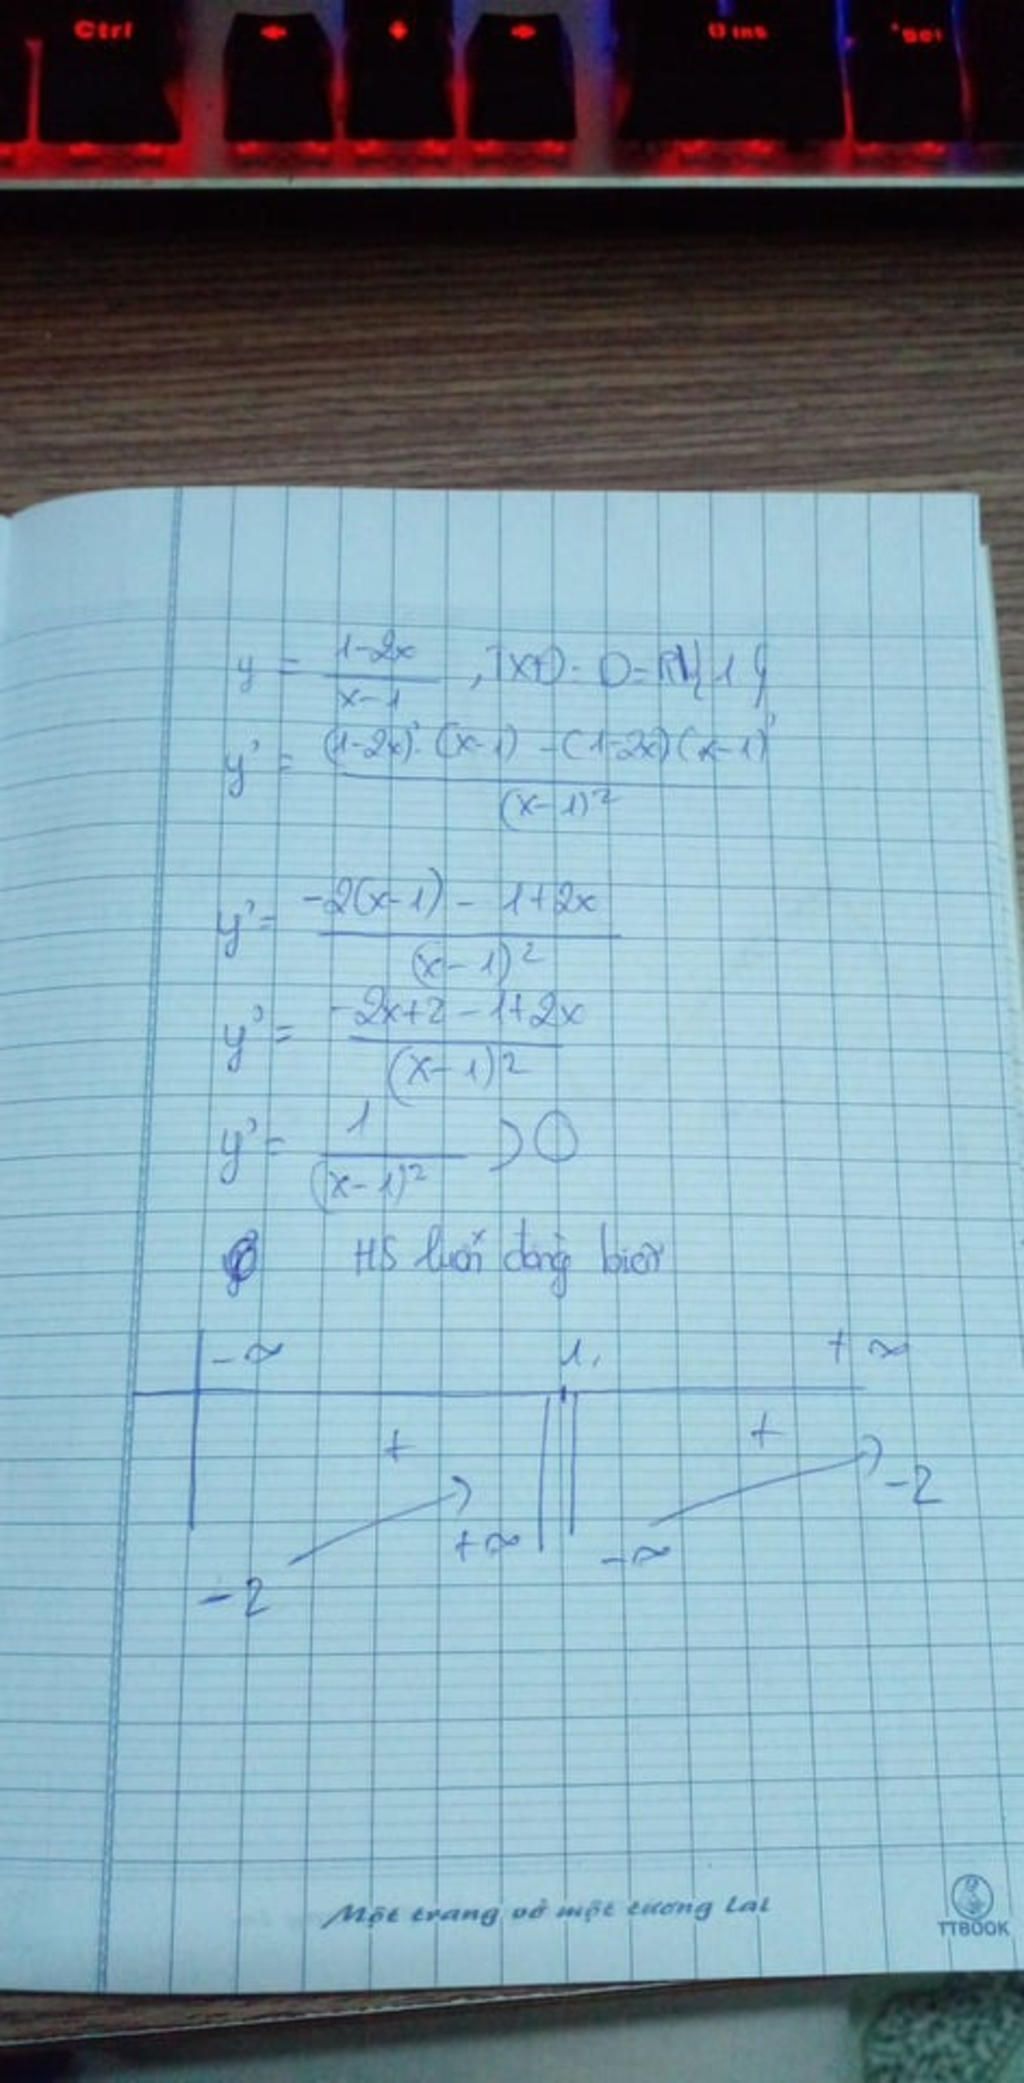 Ctrl
Ins
y = (1-2x)/(x-1) , TXĐ: D=R\{1}
y' = ((1-2x)'.(x-1) - (1-2x)(x-1)')/(x-1)²
y' = (-2(x-1) - 1+2x)/(x-1)²
y' = (-2x+2-1+2x)/(x-1)²
y' = 1/(x-1)² > 0
HS luôn đồng biến
-∞ 1 +∞
+ +
-2 +∞ -∞ -2
Một trang vở một tương lai
TTBOOK